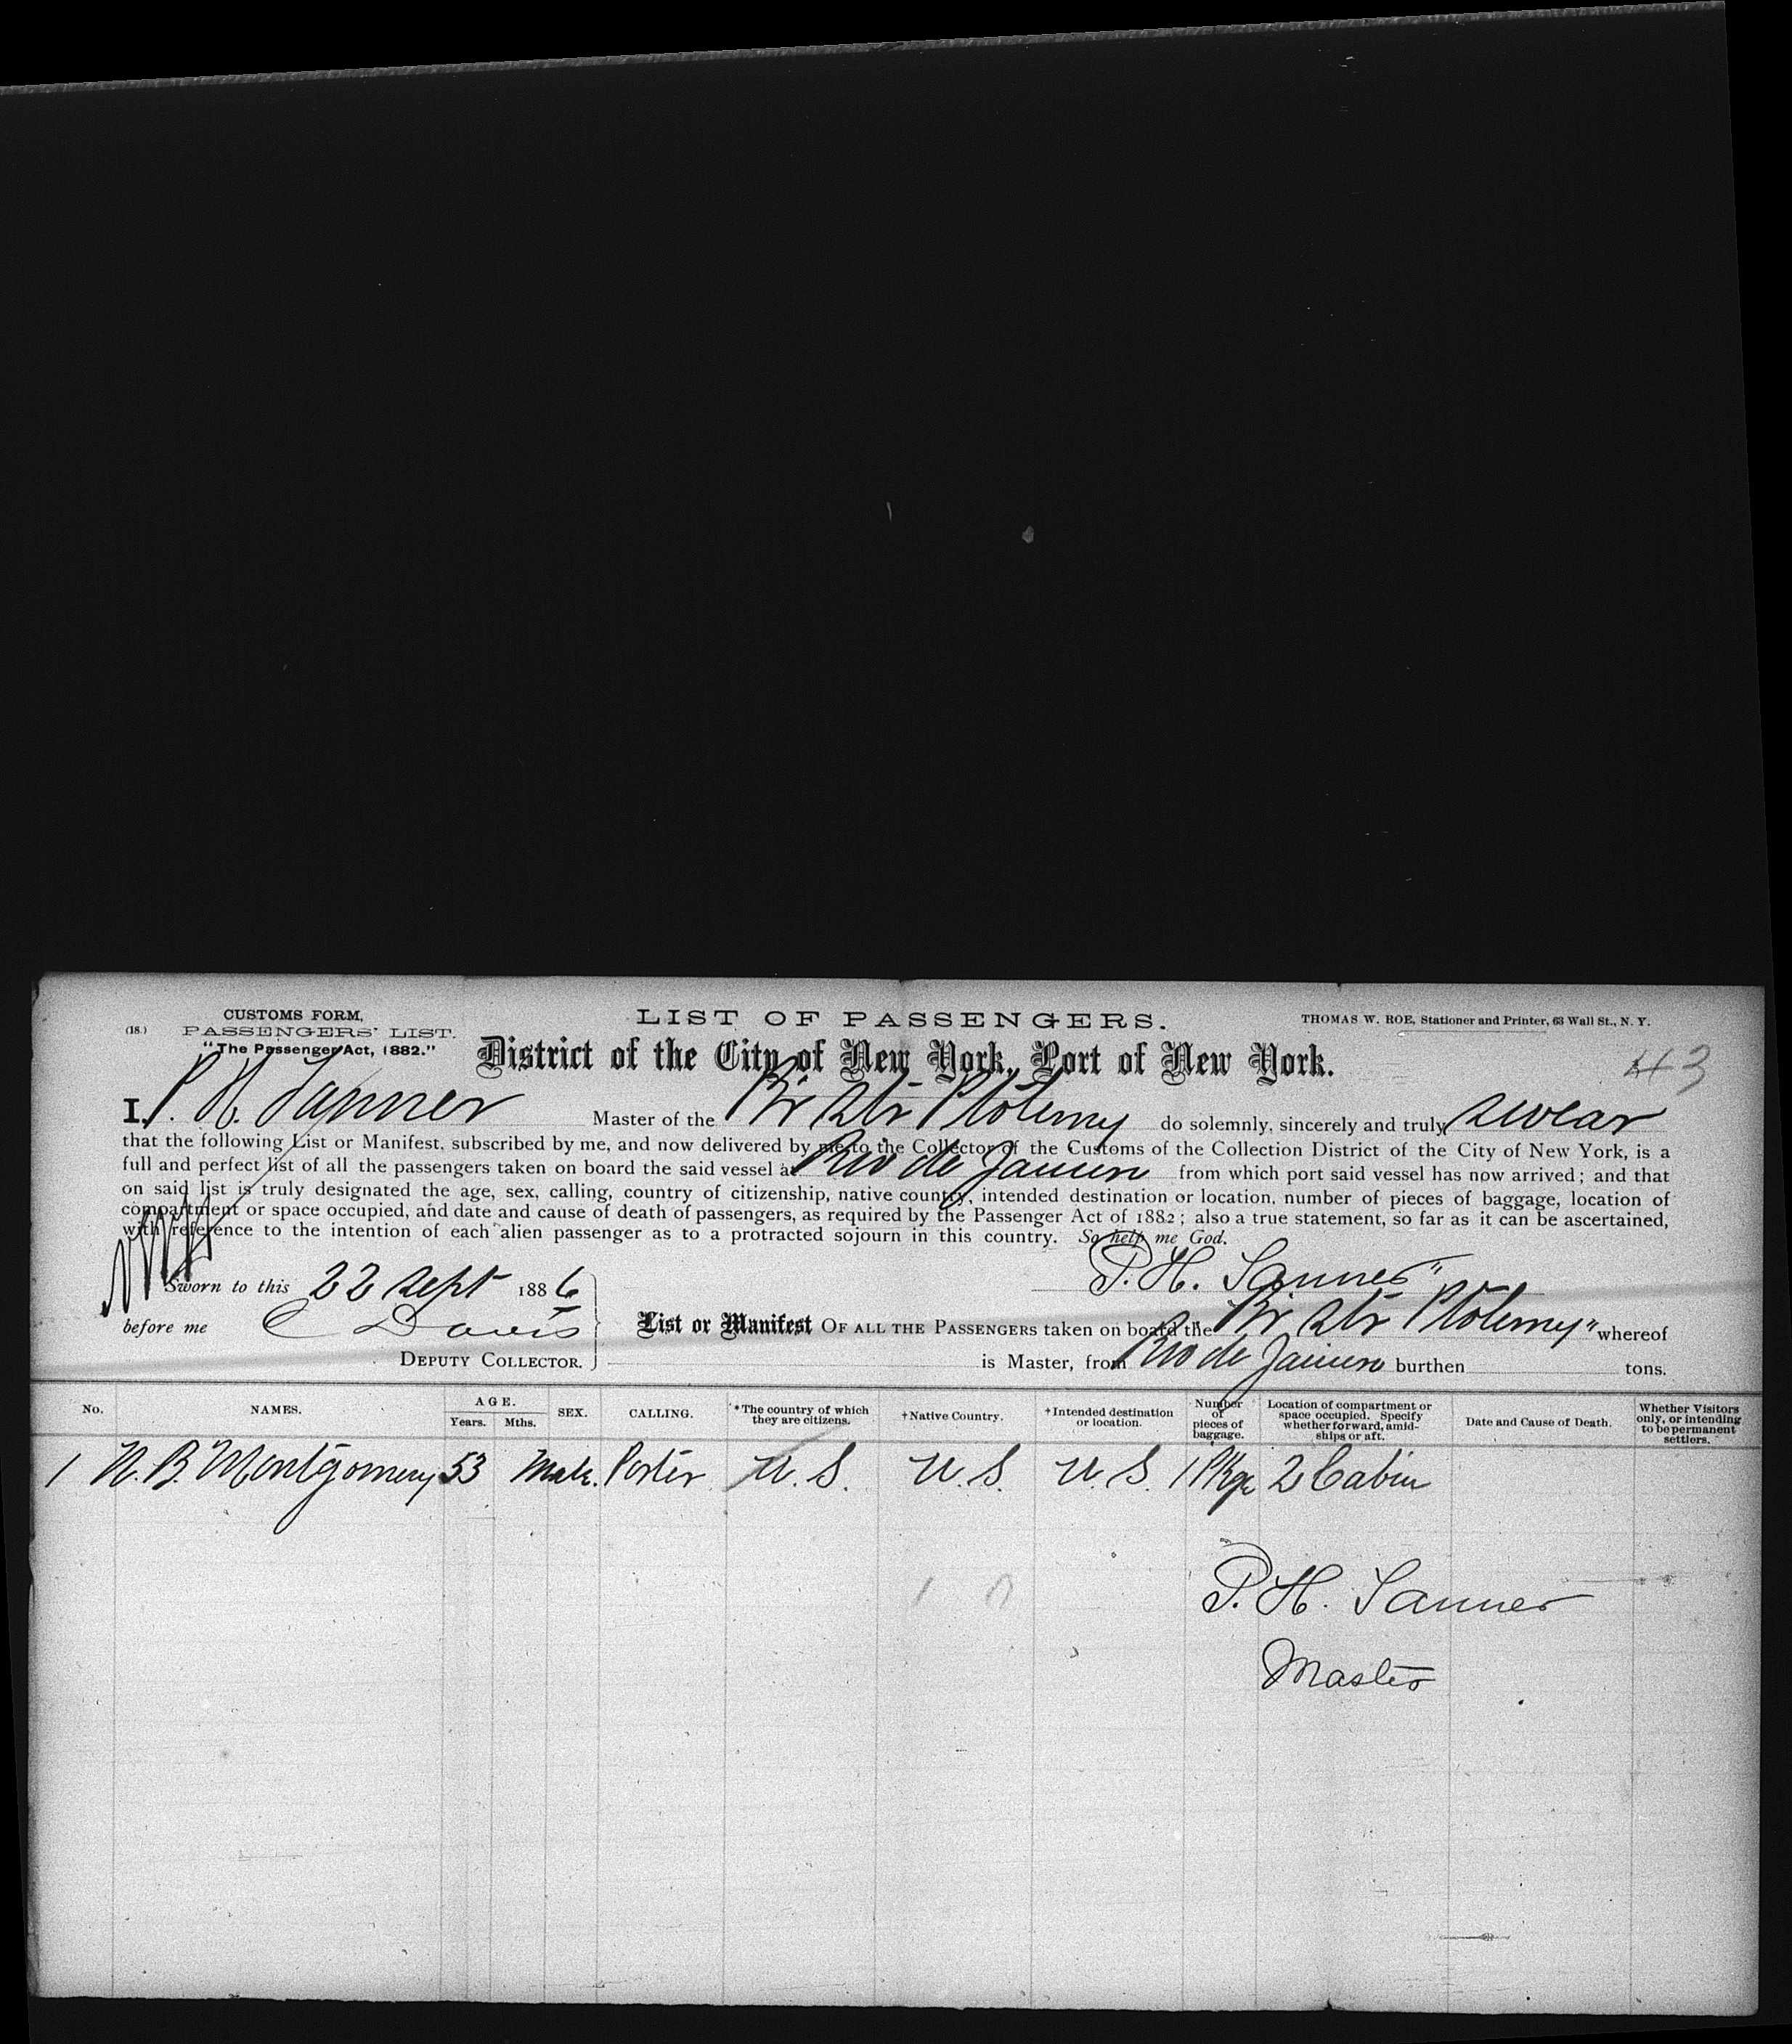 CUSTOMS FORM,
(18.) PASSENGERS' LIST.
"The Passenger Act, 1882."
LIST OF PASSENGERS.
THOMAS W. ROE, Stationer and Printer, 63 Wall St., N. Y.
District of the City of New York, Port of New York.
43
I, P. H. Tanner Master of the Br Str Ptolemy do solemnly, sincerely and truly swear
that the following List or Manifest, subscribed by me, and now delivered by me to the Collector of the Customs of the Collection District of the City of New York, is a
full and perfect list of all the passengers taken on board the said vessel at Rio de Janeiro from which port said vessel has now arrived; and that
on said list is truly designated the age, sex, calling, country of citizenship, native country, intended destination or location, number of pieces of baggage, location of
compartment or space occupied, and date and cause of death of passengers, as required by the Passenger Act of 1882; also a true statement, so far as it can be ascertained,
with reference to the intention of each alien passenger as to a protracted sojourn in this country. So help me God.
Sworn to this 22 Sept 1886 P. H. Tanner
before me C Davis
DEPUTY COLLECTOR.
List or Manifest OF ALL THE PASSENGERS taken on board the "Br Str Ptolemy" whereof
is Master, from Rio de Janeiro burthen tons.
No. NAMES. AGE. Years. Mths. SEX. CALLING. *The country of which they are citizens. †Native Country. †Intended destination or location. Number of pieces of baggage. Location of compartment or space occupied. Specify whether forward, amidships or aft. Date and Cause of Death. Whether Visitors only, or intending to be permanent settlers.
1 N. B. Montgomery 53 Male. Porter U. S. U. S. U. S. 1 Pkge 2 Cabin
P. H. Tanner
Master